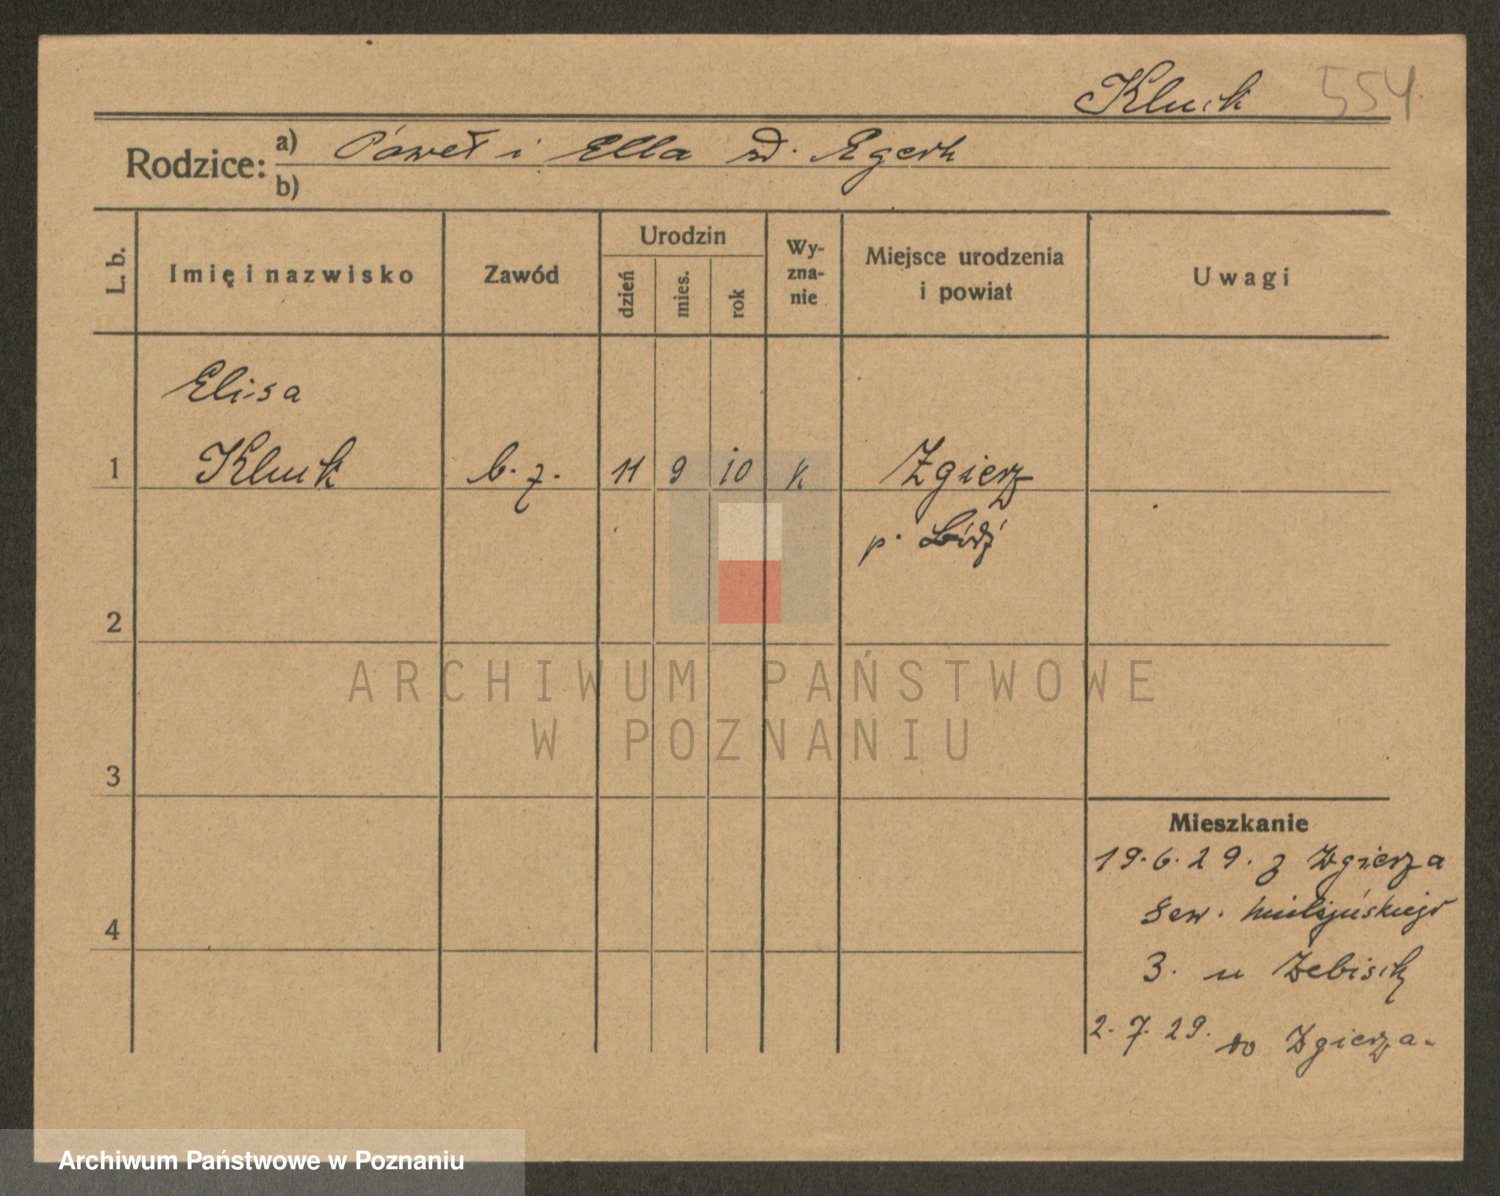 Kluck 554
Rodzice: a) Paweł i Ella
b)
L. b.
Imię i nazwisko
Zawód
Urodzin
dzień
mies.
rok
Wy-
zna-
nie
Miejsce urodzenia
i powiat
Uwagi
Elisa
1 Kluck b. z. 11 9 10 k Zgierz
p. Łódź
2
3
4
Mieszkanie
19. 6. 29. z Zgierza
Sew. Mielżyńskiego
3. u
2. 7. 29. do Zgierza.
ARCHIWUM PAŃSTWOWE
W POZNANIU
Archiwum Państwowe w Poznaniu